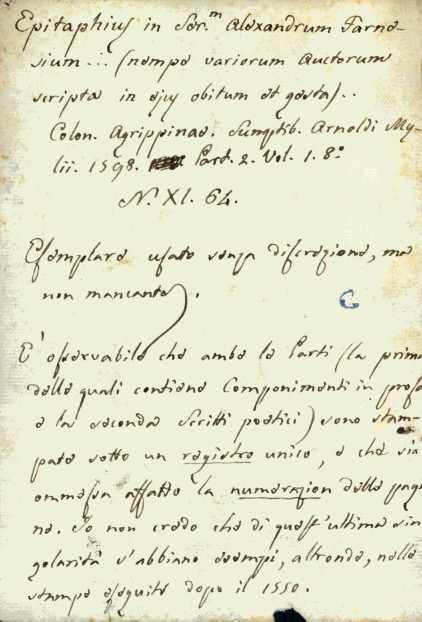 Epitaphius in Ser.m Alexandrum Farne-
sium... (nempe variorum Auctorum
scripta in ejus obitum et gesta)..
Colon. Agrippinae. Sumptib. Arnoldi My-
lii. 1598. Part. 2. Vol. 1. 8.o
N. XI. 64.
Esemplare usato senza discrezione, ma
non mancante.
E' osservabile che ambe le Parti (la prima
delle quali contiene Componimenti in prosa
e la seconda Scritti poetici) sono stam-
pate sotto un registro unico, e che sia
ommessa affatto la numerazion delle pagi
ne. Io non credo che di quest'ultima sin
golarità s'abbiano esempi, altronde, nelle
stampe eseguite dopo il 1550.